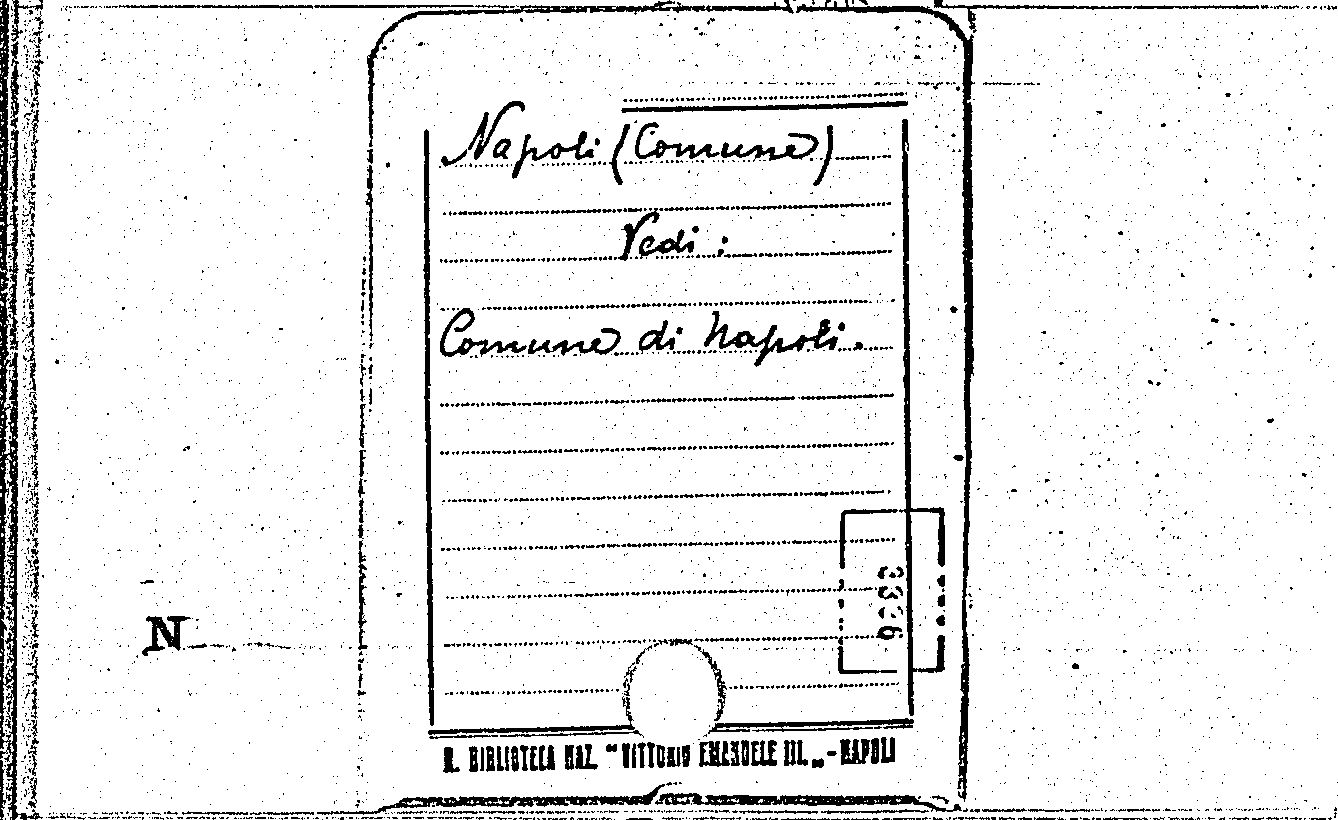 Napoli (Comune)
Vedi :
Comune di Napoli.
N
R. BIBLIOTECA NAZ. "VITTORIO EMANUELE III." - NAPOLI